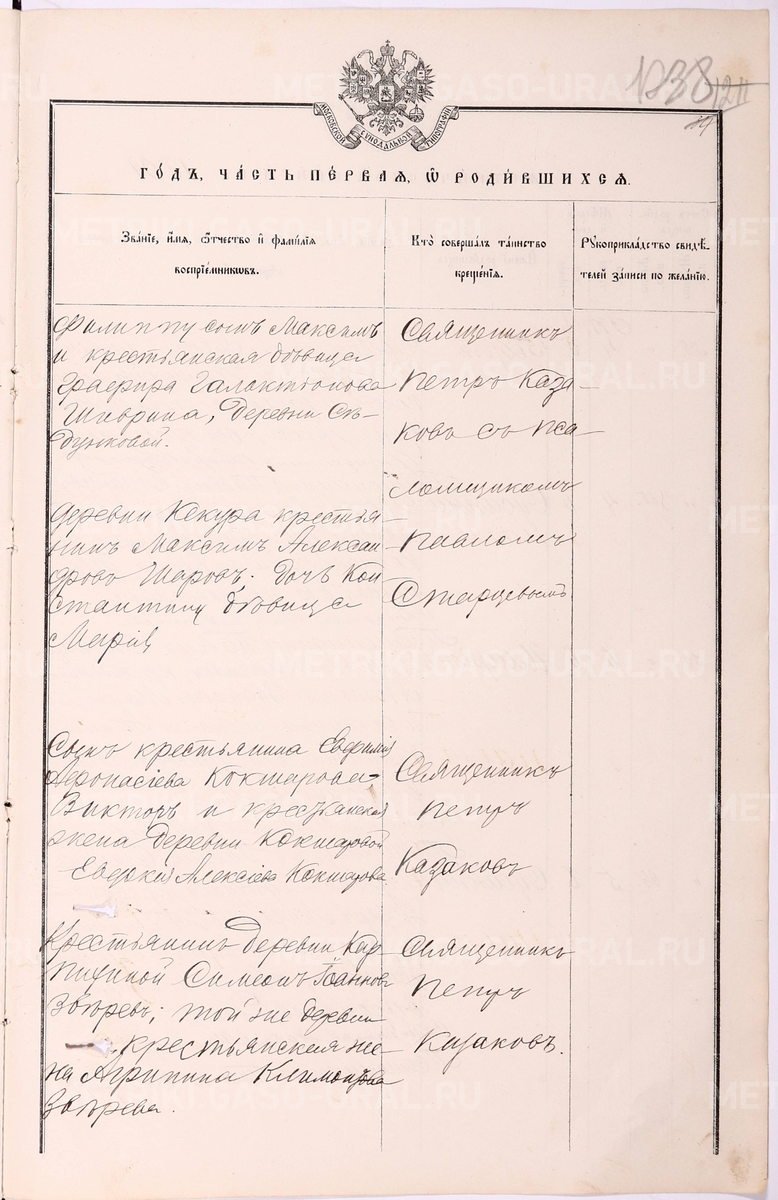 1238
1211
МОСКОВСКОЙ СѴНОДАЛЬНОЙ ТИПОГРАФІИ
ГО́ДЪ, ЧА́СТЬ ПЕ́РВАЯ, Ѡ҆ РОДИ́ВШИХСЯ.
Зва́нїе, и҆́мя, ѻ҆́тчество и҆ фами́лїя
воспрїе́мникѡвъ.
Кто̀ соверша́лъ та́инство
креще́нїя.
Рꙋкоприкла́дство свидѣ́-
телей за́писи по жела́нїю.
Филиппу сынъ Максимъ
и крестьянская дѣвица
Галактіонова
деревни Съ-
дунковой.
Священникъ
Петръ Каза-
ковъ съ Пса-
ломщикомъ
Павломъ
Старцевымъ
деревни Кекура крестья-
нинъ Максимъ Алексан-
дровъ Шаровъ; дочь Кон-
стантину дѣвица
Марія
Сынъ крестьянина Евфимія
Афонасіева Кокшарова-
Викторъ и крестьянская
жена деревни Кокшаровой
Алексіева Кокшарова
Священникъ
Петръ
Казаковъ
Крестьянинъ деревни Кар-
Симеонъ Іоанновъ
Звѣревъ; той же деревни
крестьянская же-
на Агрипина Климентова
Звѣрева.
Священникъ
Петръ
Казаковъ.
METRIKI.GASO-URAL.RU